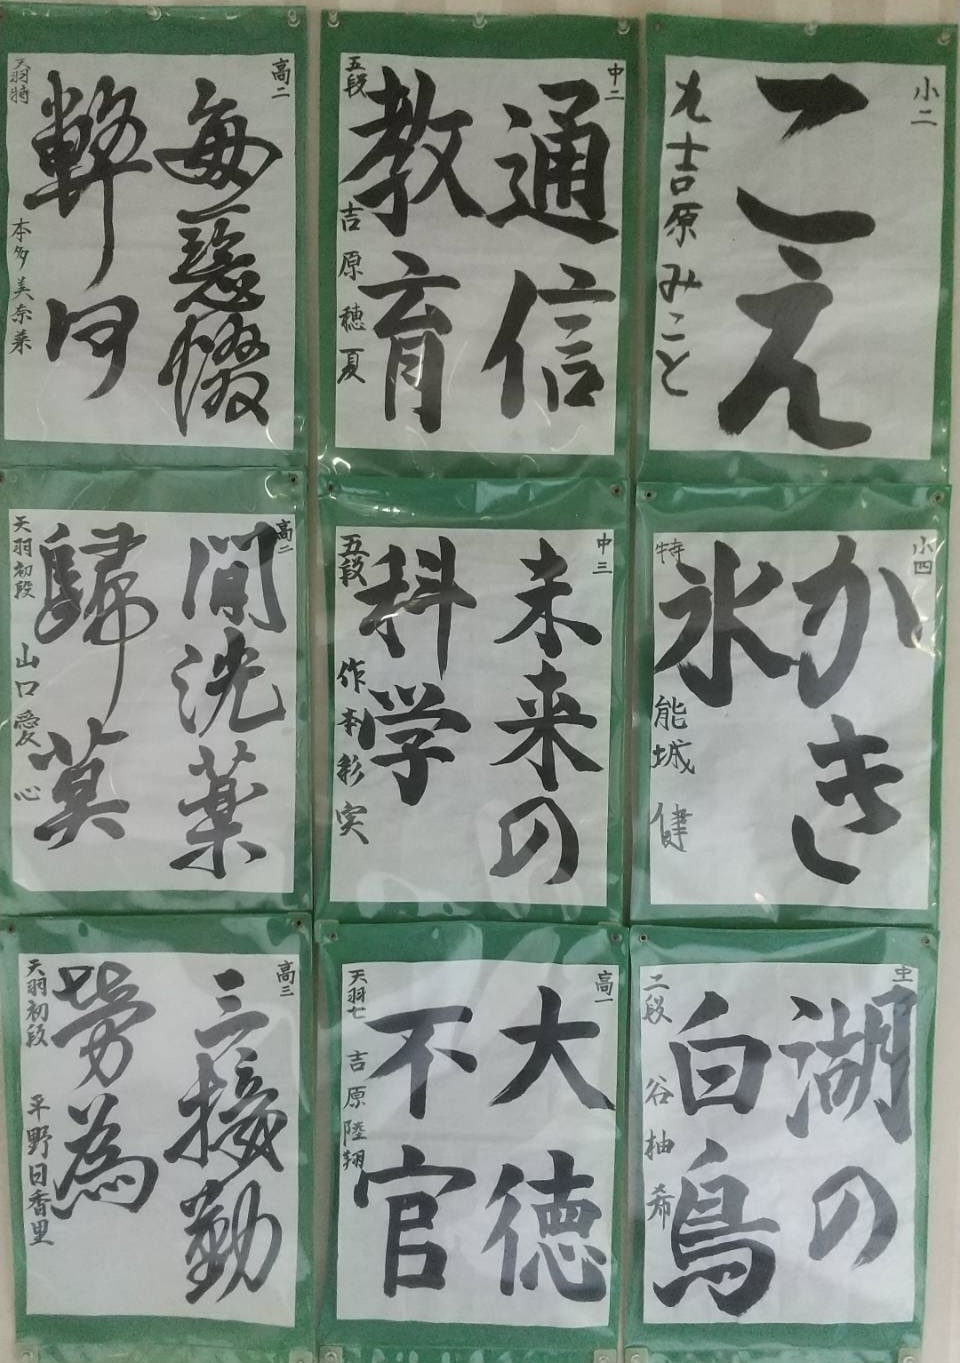 小二
こえ
九吉原みこと
中二
通信
教育
五段
吉原穂夏
高二
毎惹懶
幹何
天羽特
本多美奈菜
小四
かき
氷
特
能城健
中三
未来の
科学
五段
作本彩実
高二
間洗薬
歸莫
天羽初段
山口愛心
中一
湖の
白鳥
二段
谷柚希
高一
大徳
不官
天羽七
吉原陸翔
高三
三接勤
労為
天羽初段
平野日香里